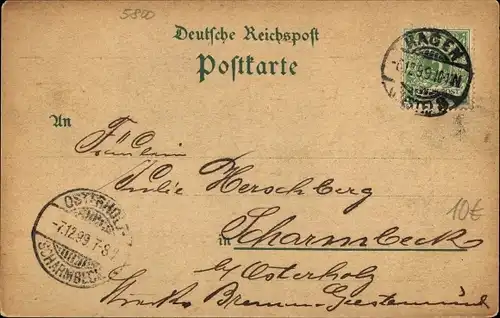 5800
Deutsche Reichspost
Postkarte
HAGEN
An
Fräulein
Julie Herschberg
in Scharmbeck
b/ Osterholz
Strecke Bremen-Geestemünde
OSTERHOLZ
7.12.99
SCHARMBECK
10€